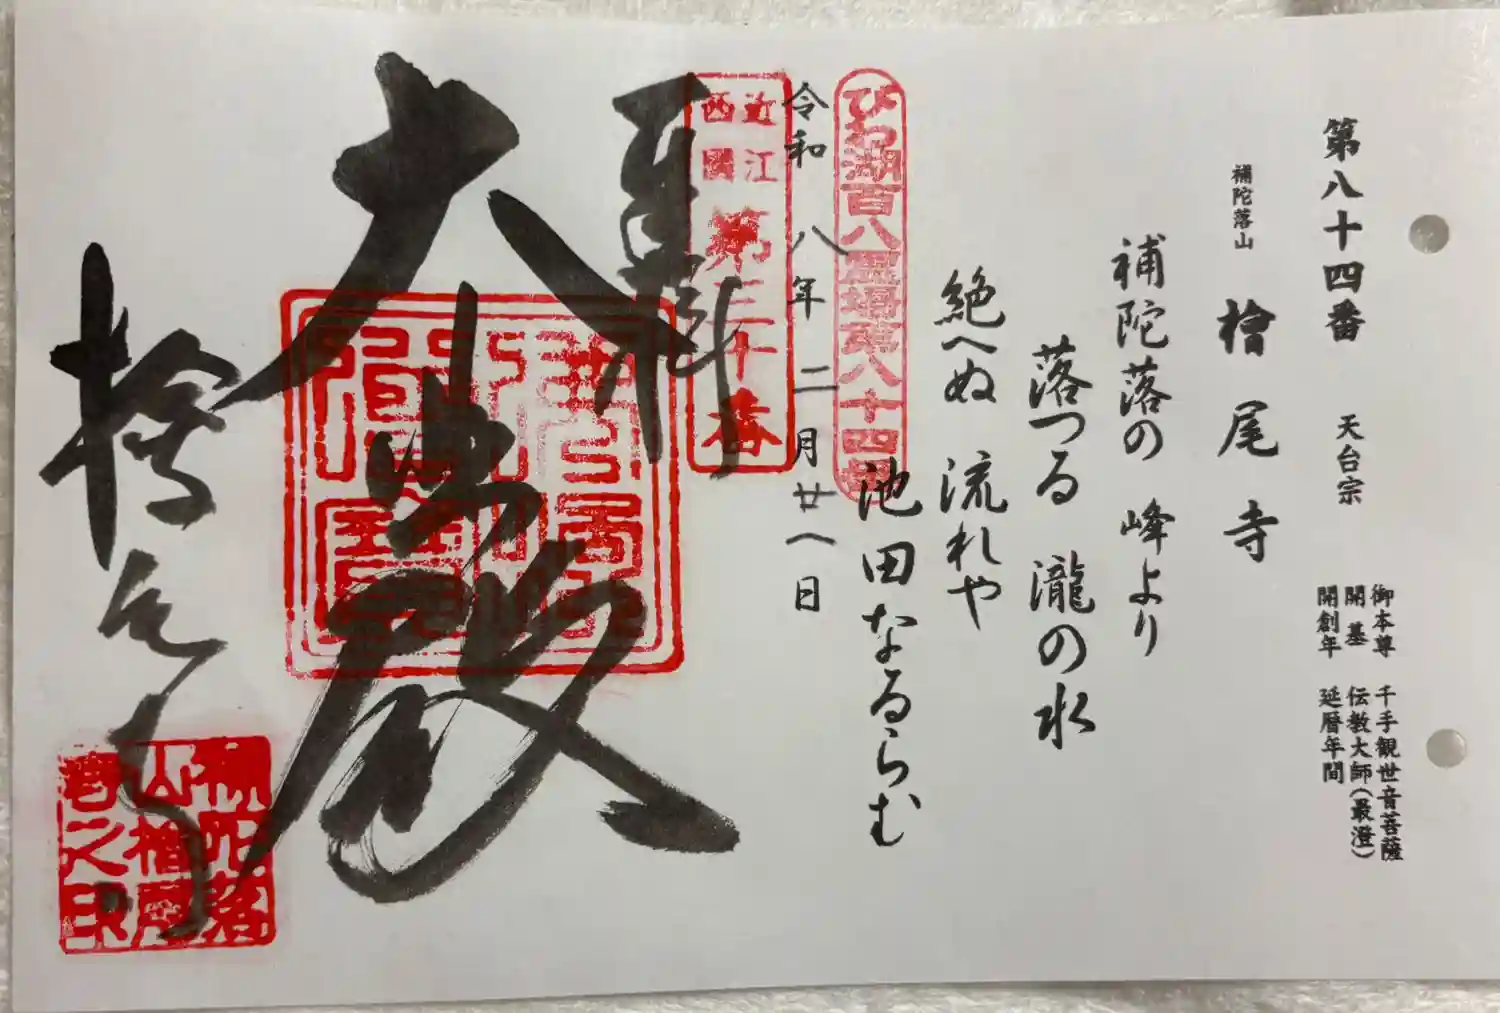 第八十四番 天台宗
御本尊 千手観世音菩薩
開基 伝教大師(最澄)
開創年 延暦年間
補陀落山
檜尾寺
補陀落の 峰より
落つる 瀧の水
絶へぬ 流れや
池田なるらむ
びわ湖百八霊場第八十四番
令和八年二月廿八日
近江
西國
第三十番
奉拝
大悲殿
檜尾寺
補陀落
山檜尾
寺之印